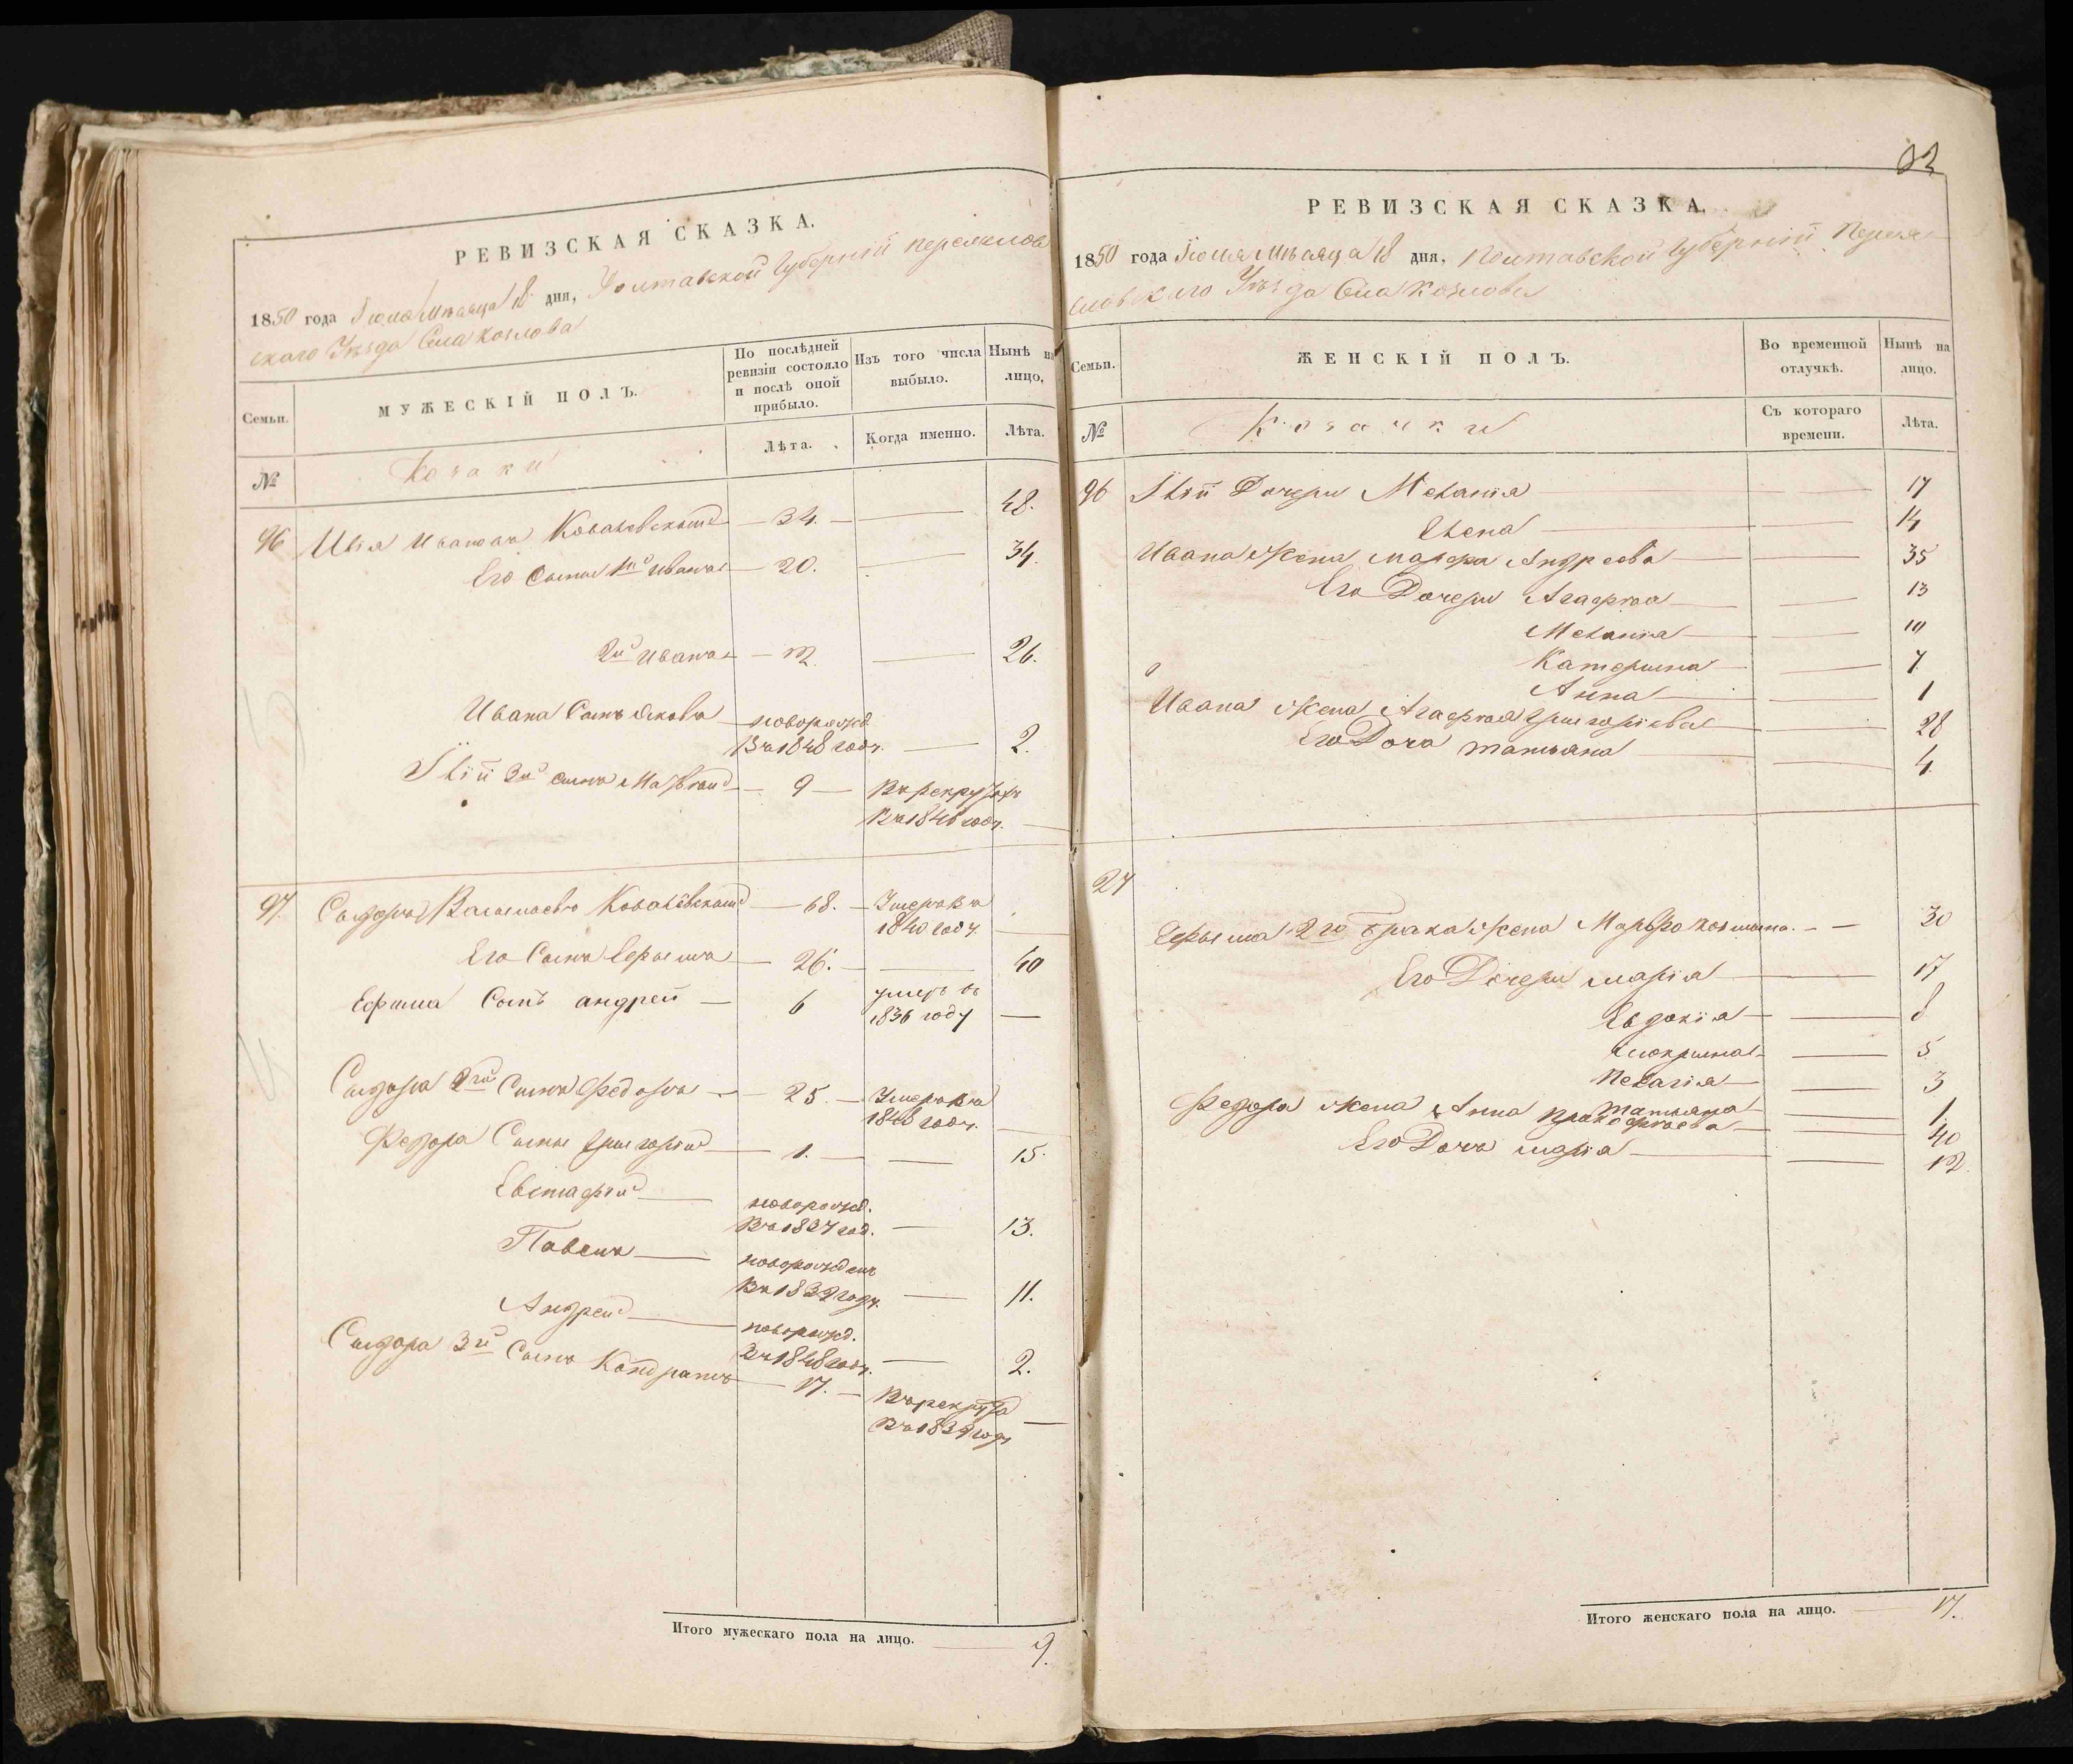 РЕВИЗСКАЯ СКАЗКА.
1850 года Іюля Мѣсяца 18 дня, Полтавской Губерніи Переяслов
скаго Уѣзда Села Козлова
Семьи.
МУЖЕСКІЙ ПОЛЪ.
По послѣдней ревизіи состояло и послѣ оной прибыло.
Изъ того числа выбыло.
Нынѣ на лицо,
№
Козаки
Лѣта.
Когда именно.
Лѣта.
96 Илія Ивановъ Ковалевскій 34. 48.
Его Сыны 1й Иванъ 20. 34.
2й Иванъ 12. 26.
Ивана Сынъ Яковъ новорожд
въ 1848 году. 2.
Іліи 3й сынъ Матвей 9 въ рекрутахъ
въ 1846 году.
97. Сидоръ Васильевъ Ковалевскій 68. Умеръ въ
1840 году.
Его Сынъ Ефимъ 26. 40
Ефима Сынъ андрей 6 умеръ въ
1836 году
Сидора 2й Сынъ Федоръ 25. Умеръ въ
1848 году.
Федора Сыны Григорій 1. 15.
Евстафій новорожд.
въ 1837 год. 13.
Павелъ новорожденъ
въ 1839 году. 11.
Андрей новорожд.
въ 1848 году. 2.
Сидора 3й Сынъ Кондратъ 17. въ рекруты
въ 1839 году
Итого мужескаго пола на лицо. 9.
РЕВИЗСКАЯ СКАЗКА.
1850 года Іюля Мѣсяца 18 дня, Полтавской Губерніи Перея
словскаго Уѣзда Села Козлова
Семьи.
ЖЕНСКІЙ ПОЛЪ.
Во временной отлучкѣ.
Нынѣ на лицо.
№
Козачки
Съ котораго времени.
Лѣта.
96 Іліи Дочери Меланія 17
Елена 14
Ивана Жена марфа Андреева 35
Его Дочери Агафія 13
Меланія 10
Катерина 7
Анна 1
Ивана Жена Агафія Григоріева 28
Его Дочь татьяна 4.
27
Ефима 2го брака Жена Марфа 30
Его Дочери марія 17
Евдокія 8
5
Пелагія 3
Татьяна 1
Федора жена Анна Прокофьева 40
Его Дочь марія 12.
Итого женскаго пола на лицо. 17.